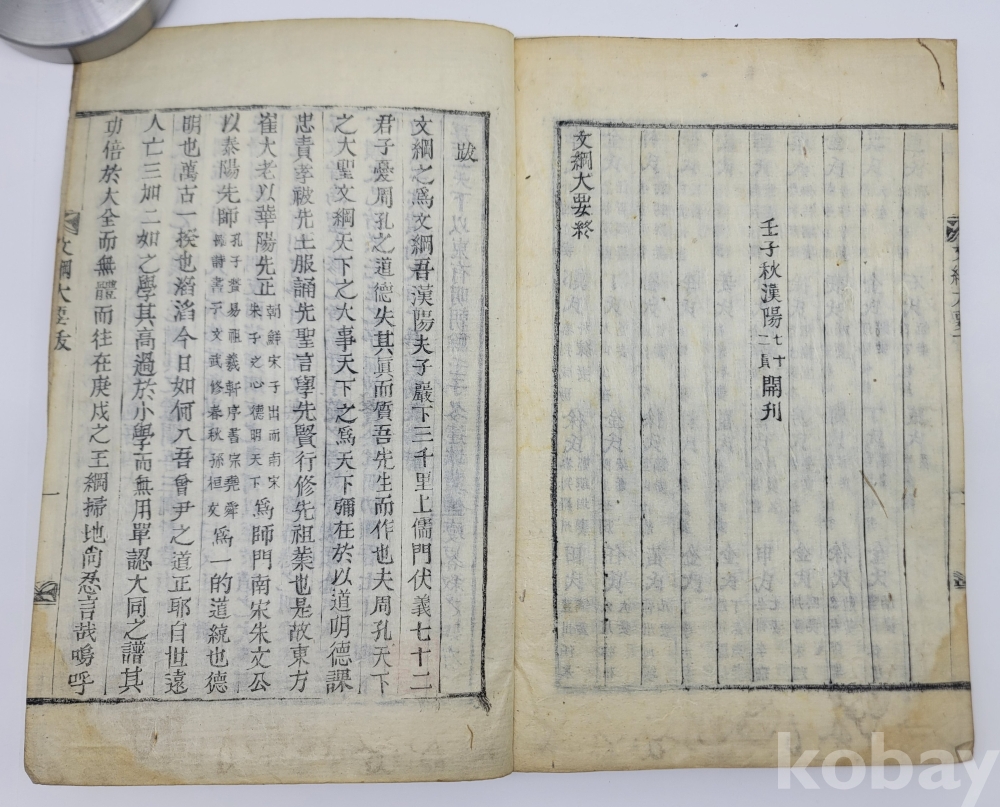 文綱大要終
壬子秋漢陽七十二員開刊
跋
文綱之爲文綱吾漢陽夫子嚴下三千里上儒門伏義七十二
君子憂周孔之道德失其眞而質吾先生而作也夫周孔天下
之大聖文綱天下之大事天下之爲天下彌在於以道明德課
忠責孝祓先王服誦先聖言學先賢行修先祖業也是故東方
崔大老以華陽先正朝鮮宋子出而南宋朱子之心德明天下爲師門南宋朱文公
以泰陽先師孔子贊易祖羲軒序書宗堯舜振詩書于文武修春秋孫桓文爲一的道統也德
明也萬古一揆也滔滔今日如何入吾曾尹之道正耶自世遠
人亡三加二如之學其高過於小學而無用單認大同之譜其
功倍於大全而無體而往在庚戌之王綱掃地尙忍言哉嗚呼
文綱大要跋
一
kobay